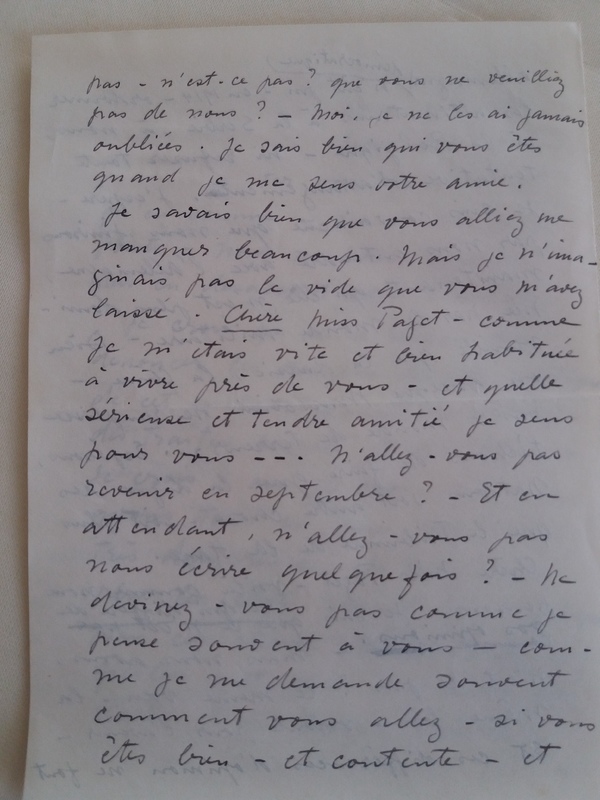 pas - n'est-ce pas ? que vous ne veuilliez
pas de nous ? - Moi, je ne les ai jamais
oubliées. Je sais bien qui vous êtes
quand je me sens votre amie.
Je savais bien que vous alliez me
manquer beaucoup. Mais je n'ima-
ginais pas le vide que vous m'avez
laissé. Chère Miss Paget - comme
Je m'étais vite et bien habituée
à vivre près de vous - et quelle
sérieuse et tendre amitié je sens
pour vous --- N'allez-vous pas
revenir en septembre ? - Et en
attendant, n'allez-vous pas
nous écrire quelquefois ? - Ne
devinez-vous pas comme je
pense souvent à vous - com-
me je me demande souvent
comment vous allez - si vous
êtes bien - et contente - et